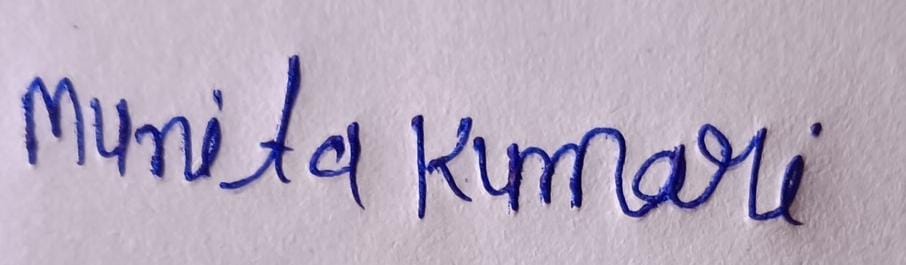 Munita Kumari